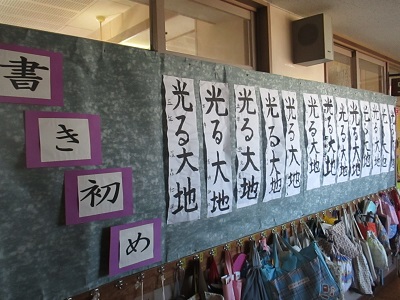 書き初め
光る大地
光る大地
光る大地
光る大地
光る大地
光る大地
光る大地
光る大地
光る大地
光る大地
光る大地